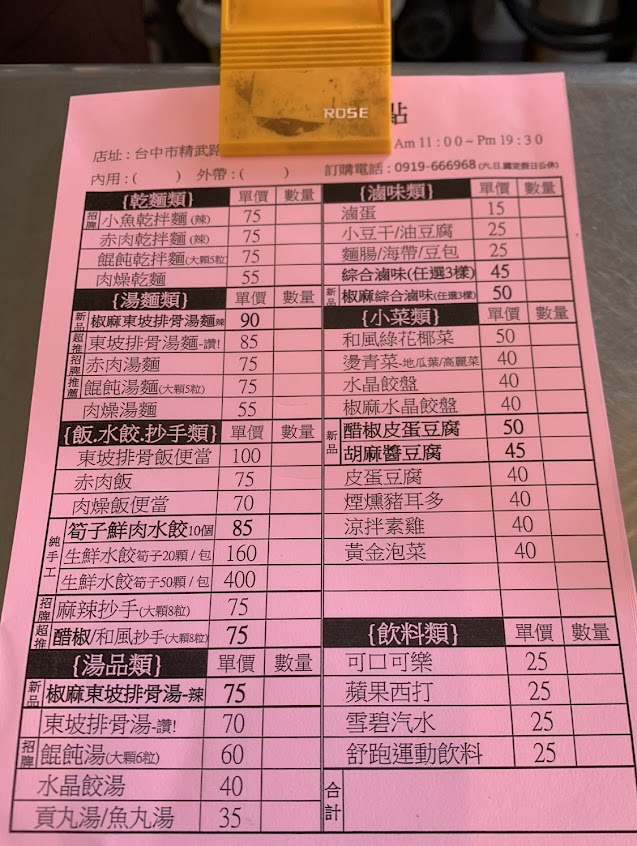 ROSE
點
店址：台中市精武路
Am 11：00～Pm 19：30
內用：(　　) 外帶：(　　)
訂購電話：0919-666968 (六.日.國定假日公休)
{乾麵類} 單價 數量
招牌 小魚乾拌麵(辣) 75
赤肉乾拌麵(辣) 75
餛飩乾拌麵(大顆5粒) 75
肉燥乾麵 55
{湯麵類} 單價 數量
新品 椒麻東坡排骨湯麵辣 90
超推 東坡排骨湯麵-讚! 85
招牌 赤肉湯麵 75
推薦 餛飩湯麵(大顆5粒) 75
肉燥湯麵 55
{飯.水餃.抄手類} 單價 數量
東坡排骨飯便當 100
赤肉飯 75
肉燥飯便當 70
純手工 筍子鮮肉水餃10個 85
生鮮水餃筍子20顆/包 160
生鮮水餃筍子50顆/包 400
招牌 麻辣抄手(大顆8粒) 75
超推 醋椒/和風抄手(大顆8粒) 75
{湯品類} 單價 數量
新品 椒麻東坡排骨湯-辣 75
東坡排骨湯-讚! 70
招牌 餛飩湯(大顆6粒) 60
水晶餃湯 40
貢丸湯/魚丸湯 35
{滷味類} 單價 數量
滷蛋 15
小豆干/油豆腐 25
麵腸/海帶/豆包 25
綜合滷味(任選3樣) 45
新品 椒麻綜合滷味(任選3樣) 50
{小菜類} 單價 數量
和風綠花椰菜 50
燙青菜-地瓜葉/高麗菜 40
水晶餃盤 40
椒麻水晶餃盤 40
新品 醋椒皮蛋豆腐 50
胡麻醬豆腐 45
皮蛋豆腐 40
煙燻豬耳多 40
涼拌素雞 40
黃金泡菜 40
{飲料類} 單價 數量
可口可樂 25
蘋果西打 25
雪碧汽水 25
舒跑運動飲料 25
合計